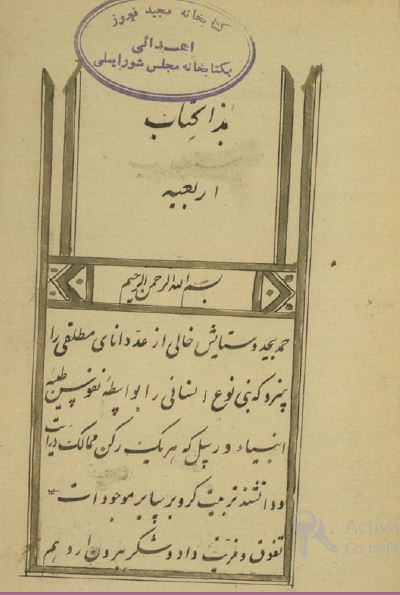 کتابخانه مجید فیروز
اهدائی
بکتابخانه مجلس شورایملی
هذا کتاب
اربعیه
بسم الله الرحمن الرحیم
حمد بیحد و ستایش خالی از عدد دانای مطلقی را
سزد که بنی نوع انسانی را بواسطه نفوس طیبه
انبیاء و رسل که هر یک رکن ممالک
و دانشند تربیت کرو بر سایر موجودات
تفوق و مزیت داد و شکر بیرون از وهم
Activa
Go to P